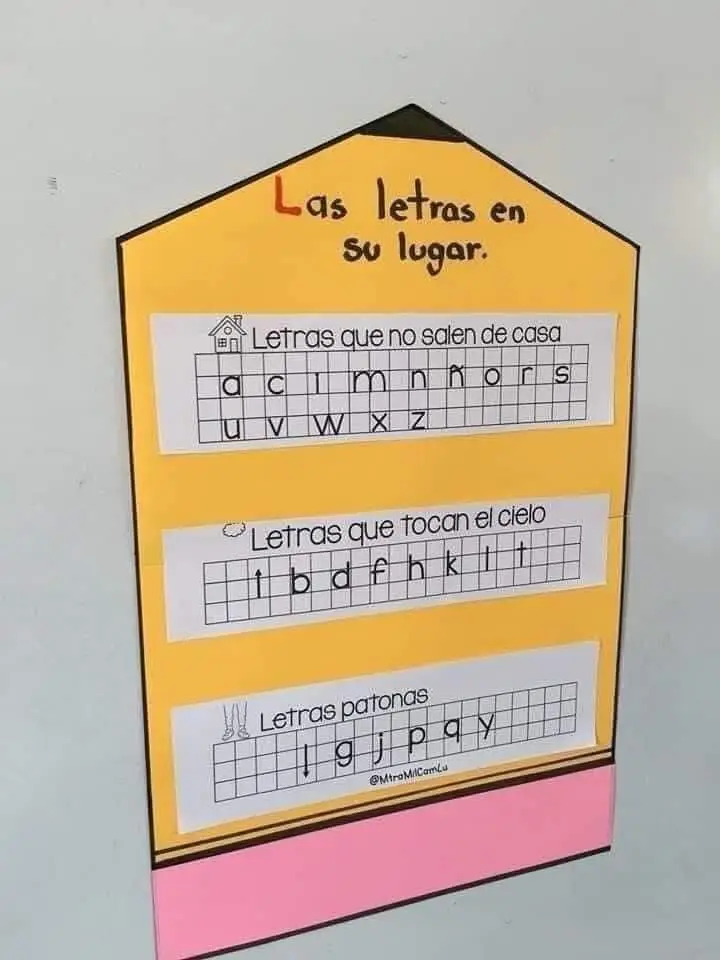 Las letras en
su lugar.
Letras que no salen de casa
a c i m n ñ o r s
u v w x z
Letras que tocan el cielo
b d f h k l t
Letras patonas
g j p q y
@MtraMilCamLu